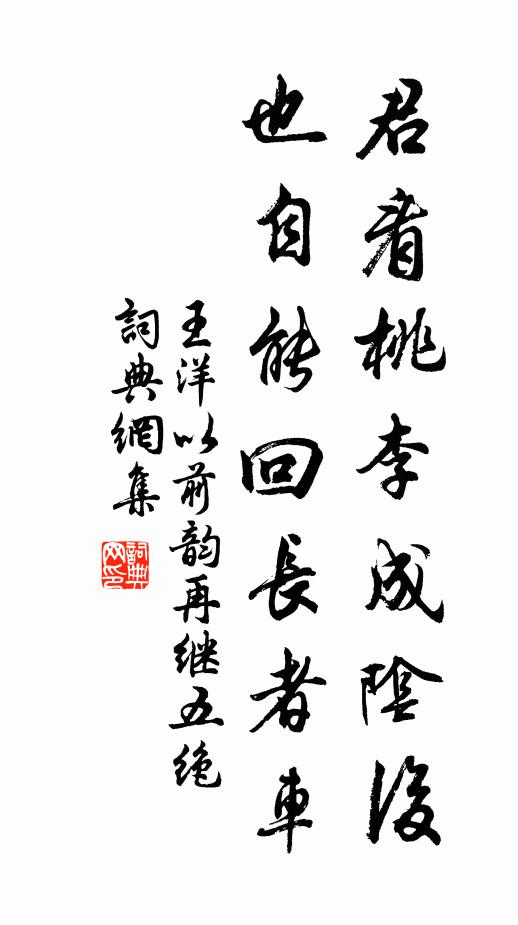 君看桃李成陰後
也自能回長者車
王洋以前韵再继五绝
詞典網集
詞典网印